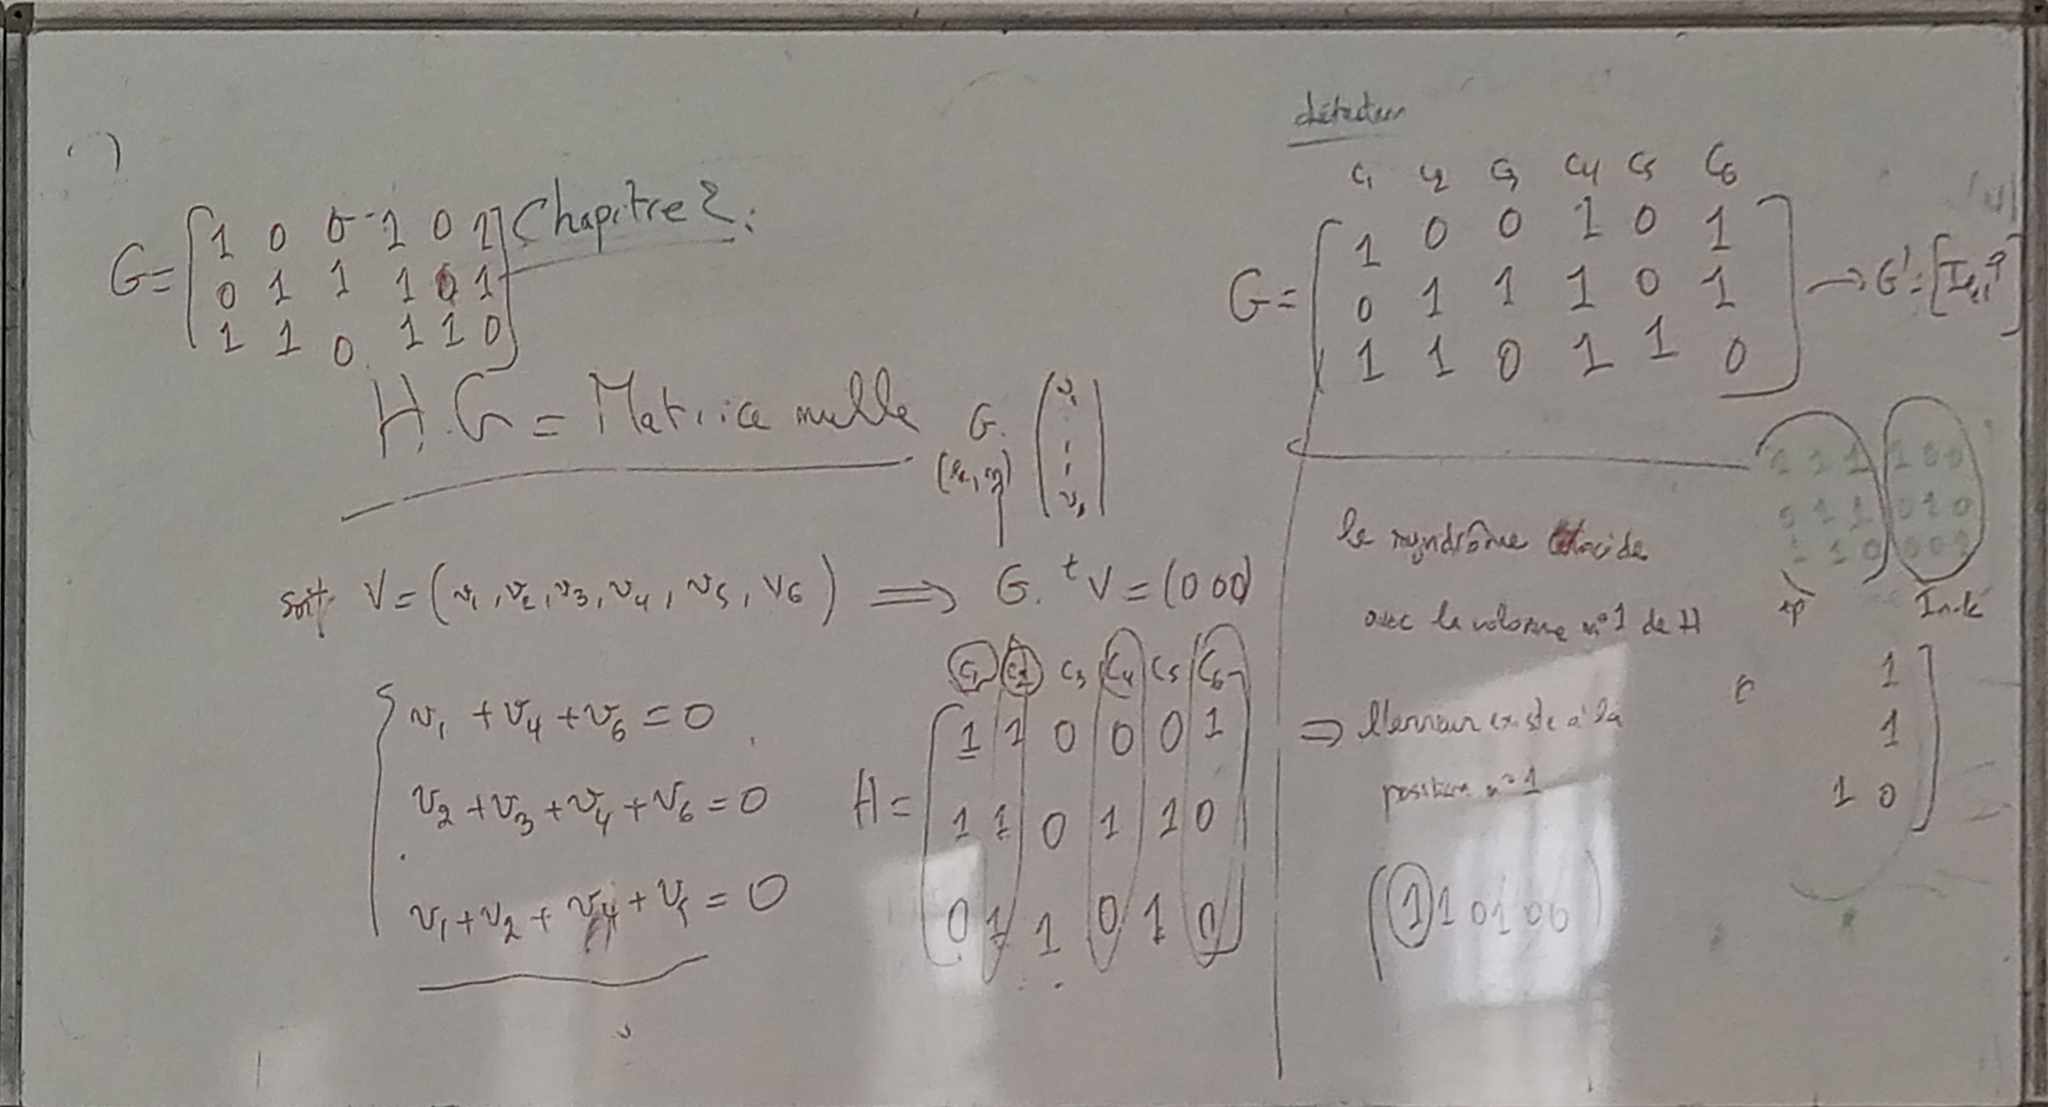 Chapitre 2:
G = [1 0 0 1 0 1
0 1 1 1 0 1
1 1 0 1 1 0]
H.G = Matrice nulle
G.
(v₁
soit V = (v₁, v₂, v₃, v₄, v₅, v₆) ⟹ G. ᵗV = (0 0 0)
v₁ + v₄ + v₆ = 0
v₂ + v₃ + v₄ + v₆ = 0
v₁ + v₂ + v₄ + v₅ = 0
C₁ C₂ C₃ C₄ C₅ C₆
H = [1 1 0 0 0 1
1 1 0 1 1 0
0 1 1 0 1 0]
C₁ C₂ C₃ C₄ C₅ C₆
G = [1 0 0 1 0 1
0 1 1 1 0 1
1 1 0 1 1 0] → G' = [I
le syndrôme
avec la colonne n° 1 de H
⟹ l'erreur existe à la
position n° 1
(1 1 0 1 0 0)
1 1 1 1 0 0
0 1 1 0 1 0
1 1 0 0 0 1
tp
In-k
1
1
1 0